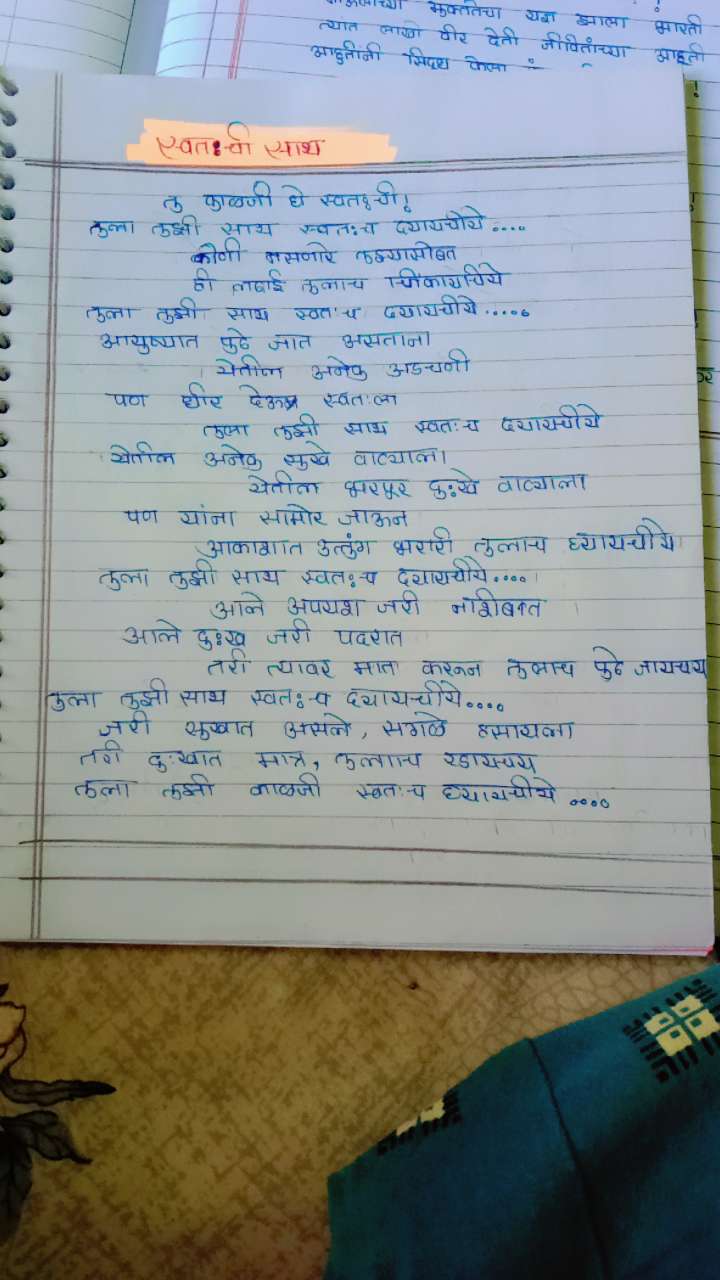 मुक्ततेचा यज्ञ झाला भारती
त्यात लाखो वीर देती जीवितांच्या आहुती
आहुतींनी सिद्ध केला
स्वतःची साथ
तु काळजी घे स्वतःची!
तुला तुझी साथ स्वतःच द्यायचीये....
कोणी नसणारे तुझ्यासोबत
ही लढाई तुलाच जिंकायचिये
तुला तुझी साथ स्वतःच द्यायचीये.....
आयुष्यात पुढे जात असताना
येतील अनेक अडचणी
पण धीर देऊन स्वतःला
तुला तुझी साथ स्वतःच द्यायचीये
येतील अनेक सुखे वाट्याला
येतील भरपूर दुःखे वाट्याला
पण यांना सामोर जाऊन
आकाशात उत्तुंग भरारी तुलाच घ्यायचीये
तुला तुझी साथ स्वतःच द्यायचीये....
आले अपयश जरी नशीबात
आले दुःख जरी पदरात
तरी त्यावर मात करून तुलाच पुढे जायचय
तुला तुझी साथ स्वतःच द्यायचीये....
जरी सुखात असले, सगळे हसायला
तरी दुःखात मात्र, तुलाच रडायचय
तुला तुझी काळजी स्वतःच घ्यायचीये ....